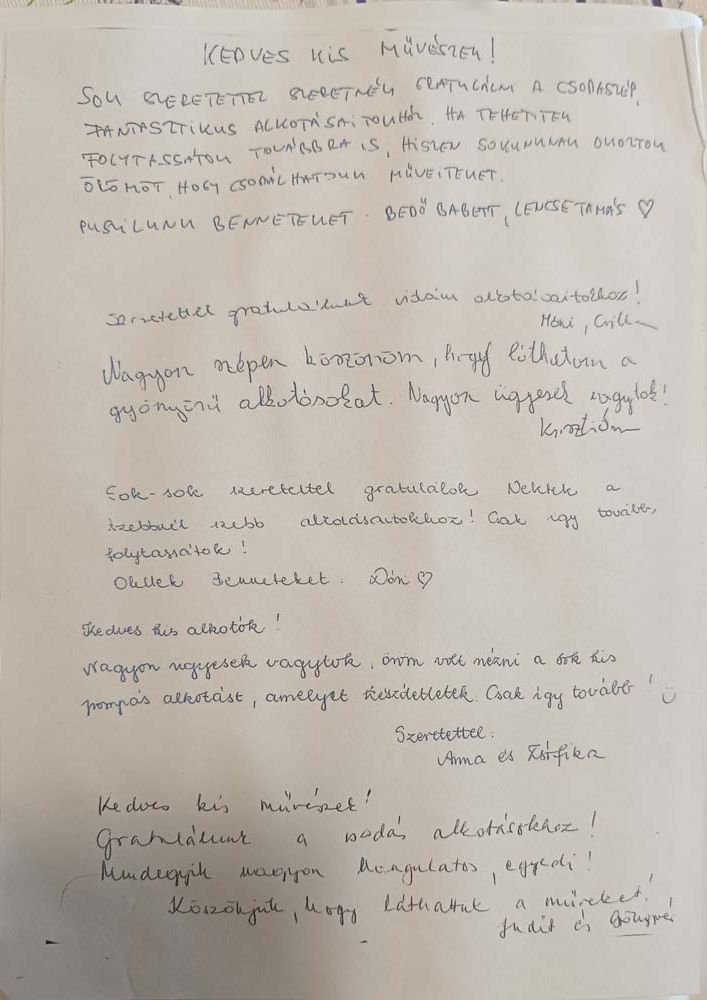 KEDVES KIS MŰVÉSZEK!
SOK SZERETETTEL SZERETNÉK GRATULÁLNI A CSODASZÉP,
FANTASZTIKUS ALKOTÁSAITOKHOZ. HA TEHETITEK
FOLYTASSÁTOK TOVÁBBRA IS, HISZEN SOKUNKNAK OKOZTOK
ÖLÖMÖT, HOGY CSODÁLHATJUK MŰVEITEKET.
PUSZILUNK BENNETEKET. BEDŐ BABETT, LENCSE TAMÁS ♡
Szeretettel gratulálunk vidám alkotásaitokhoz!
Móni, Csilla
Nagyon szépen köszönöm, hogy láthatom a
gyönyörű alkotásokat. Nagyon ügyesek vagytok!
Krisztián
Sok-sok szeretettel gratulálok Nektek a
szebbnél szebb alkotásaitokhoz! Csak így tovább,
folytassátok!
Ölellek Benneteket. ♡
Kedves kis alkotók!
Nagyon ügyesek vagytok, öröm volt nézni a sok kis
pompás alkotást, amelyet készítettetek. Csak így tovább!
Szeretettel:
Anna és Zsófika
Kedves kis művészek!
Gratulálunk a csodás alkotásokhoz!
Mindegyik nagyon hangulatos, egyedi!
Köszönjük, hogy láthattuk a műveket!
Judit és